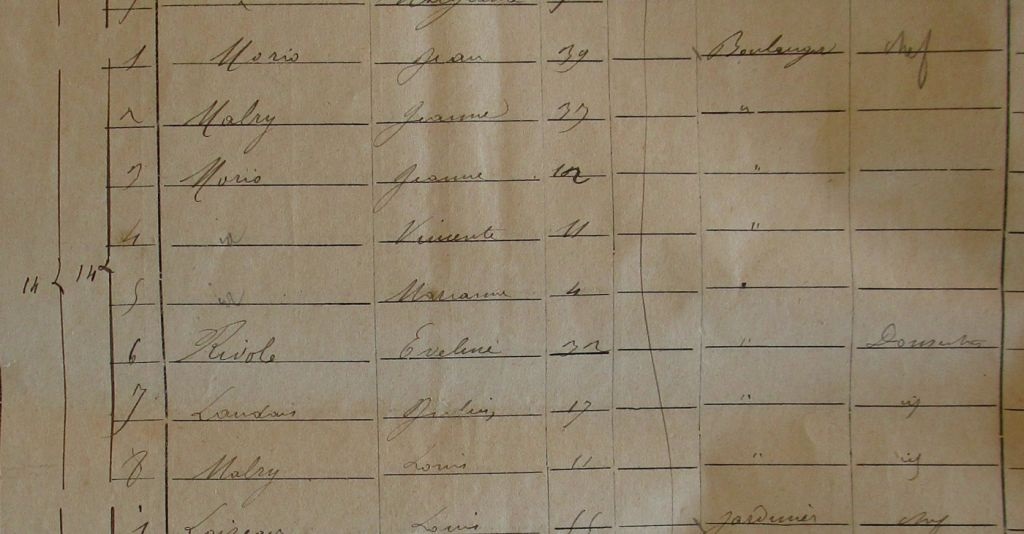 1 Morio Jean 39 Boulanger chef
2 Malry Jeanne 37 "
3 Morio Jeanne 12 "
4 id Vincente 11 "
14 14
5 id Marianne 4 "
6 Rivole Eveline 32 " Domestique
7 Landais 17 " id
8 Malry Louis 11 " id
1 Loiseau Louis 55 Jardinier chef